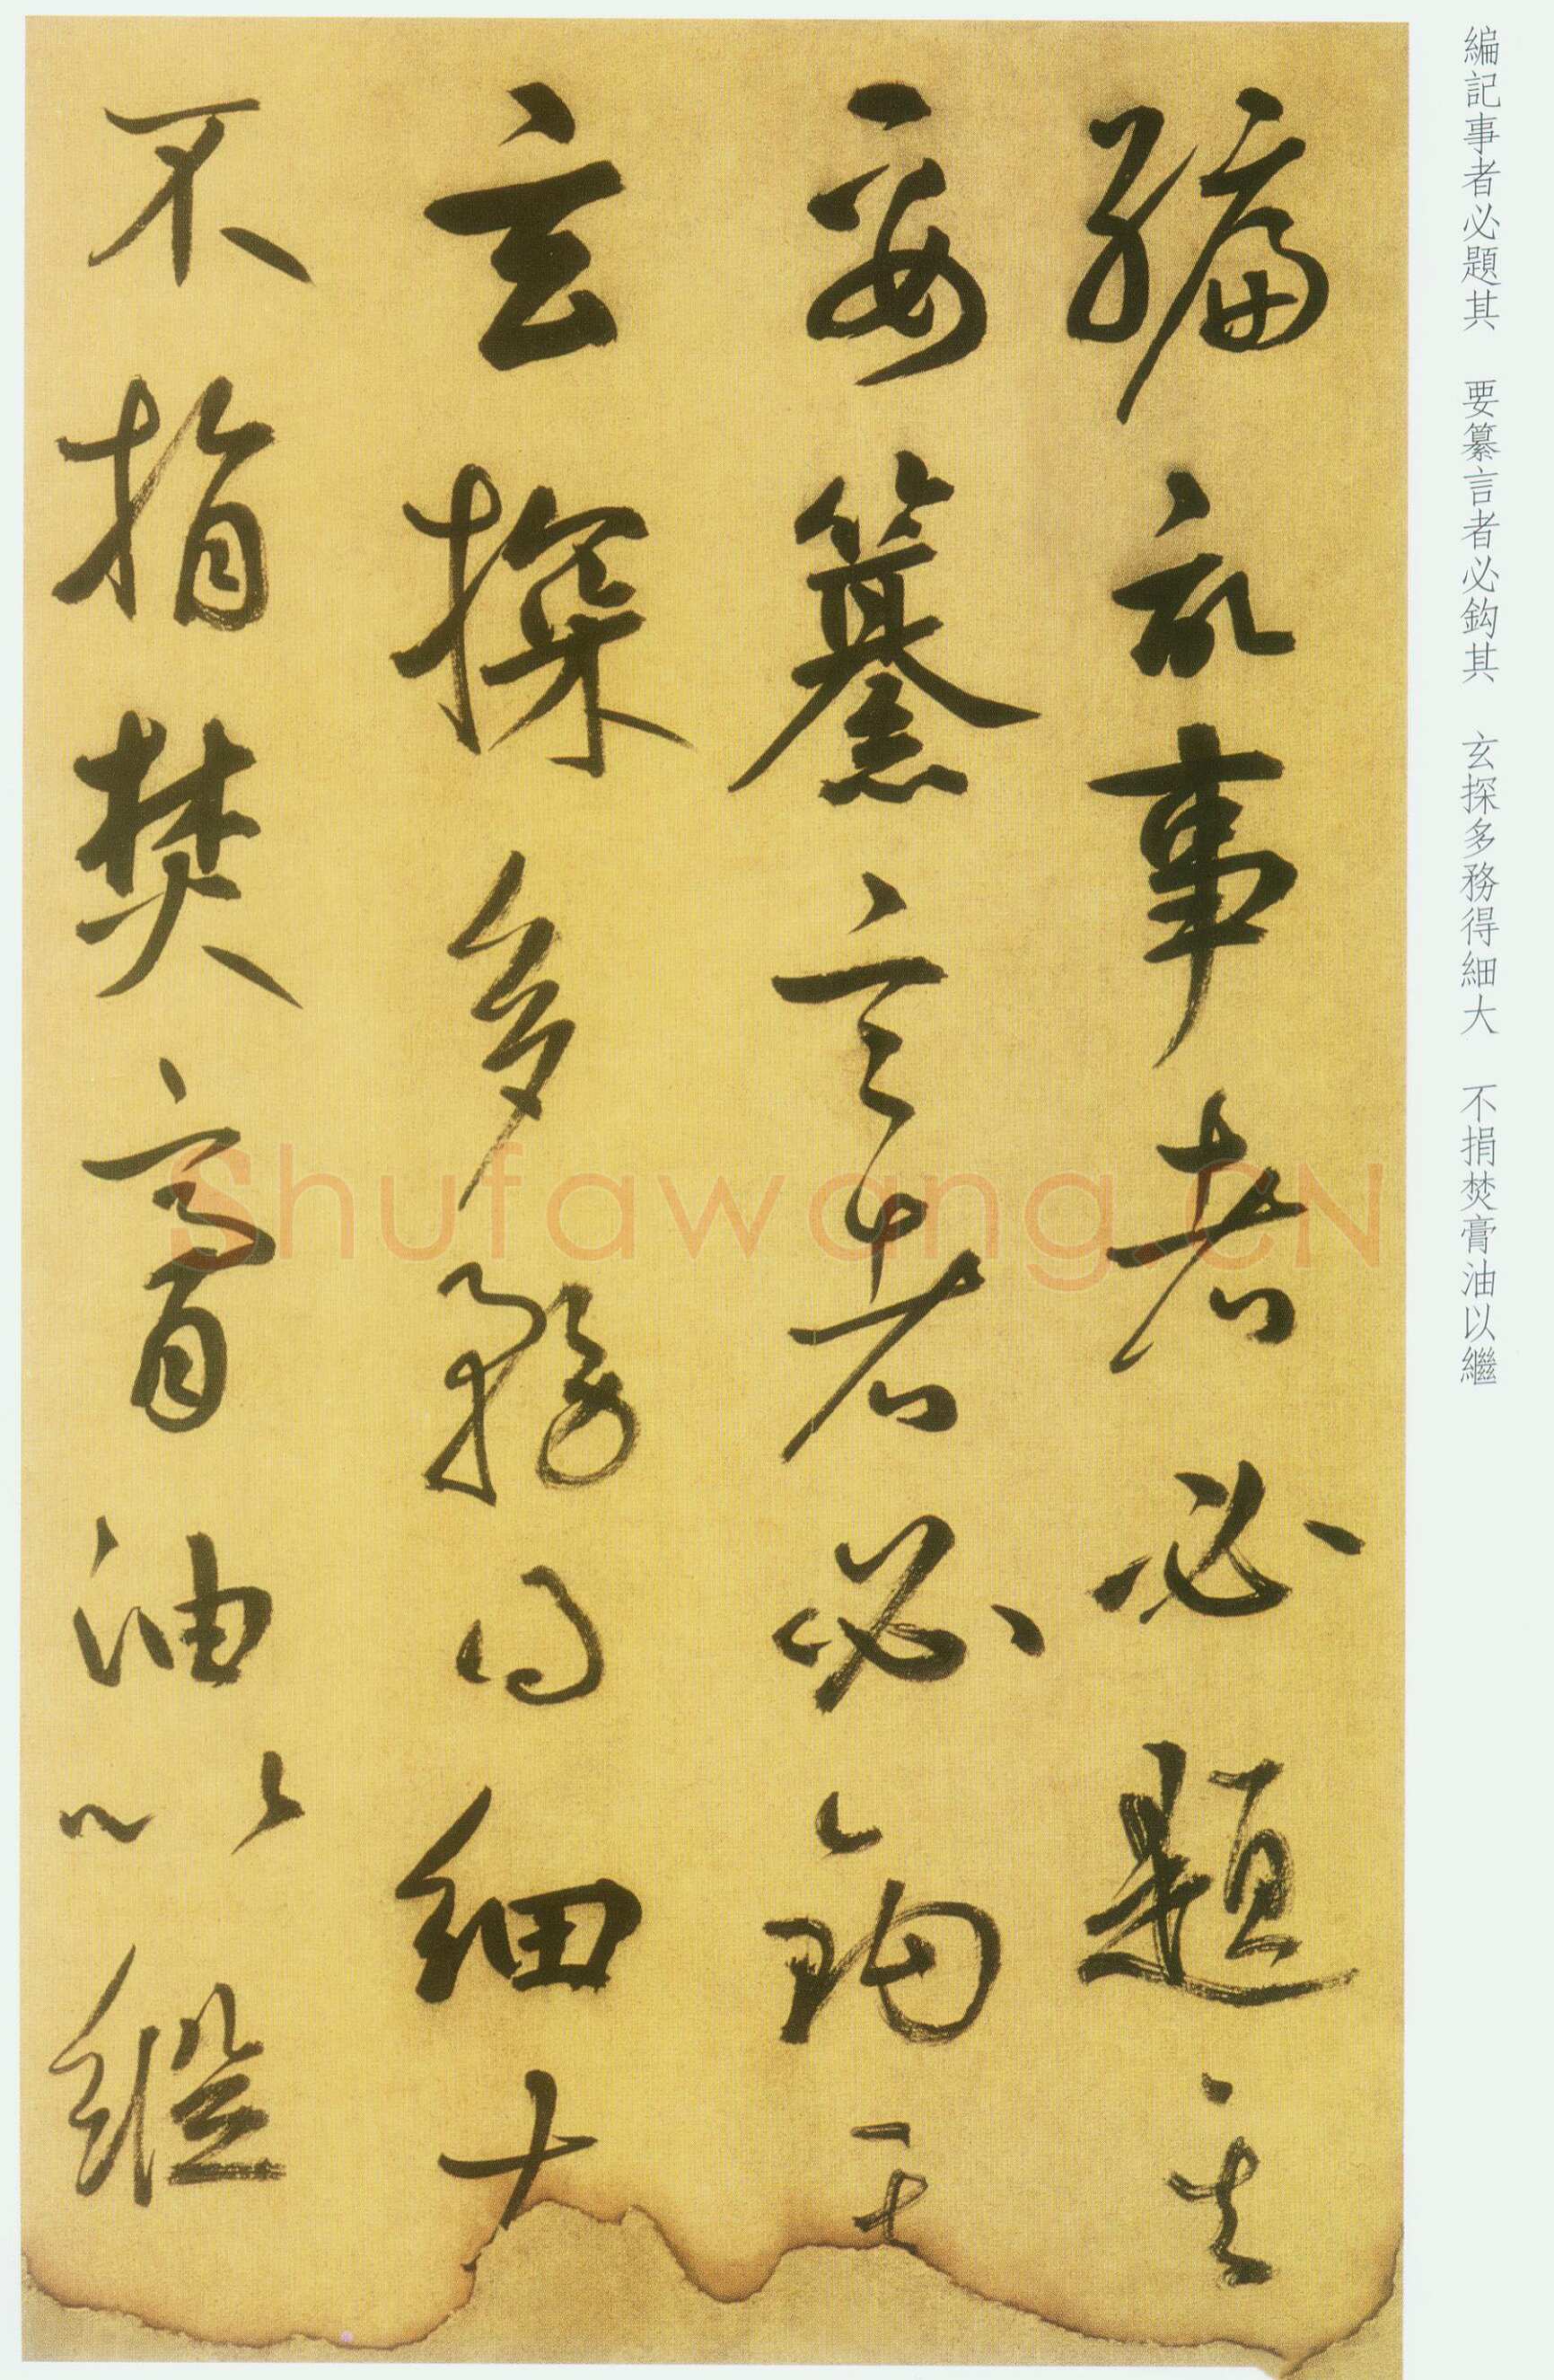 編記事者必題其
要纂言者必鈎其
玄探多務得細大
不捐焚膏油以繼
編記事者必題其 要纂言者必鈎其 玄探多務得細大 不捐焚膏油以繼
Shufawang.CN